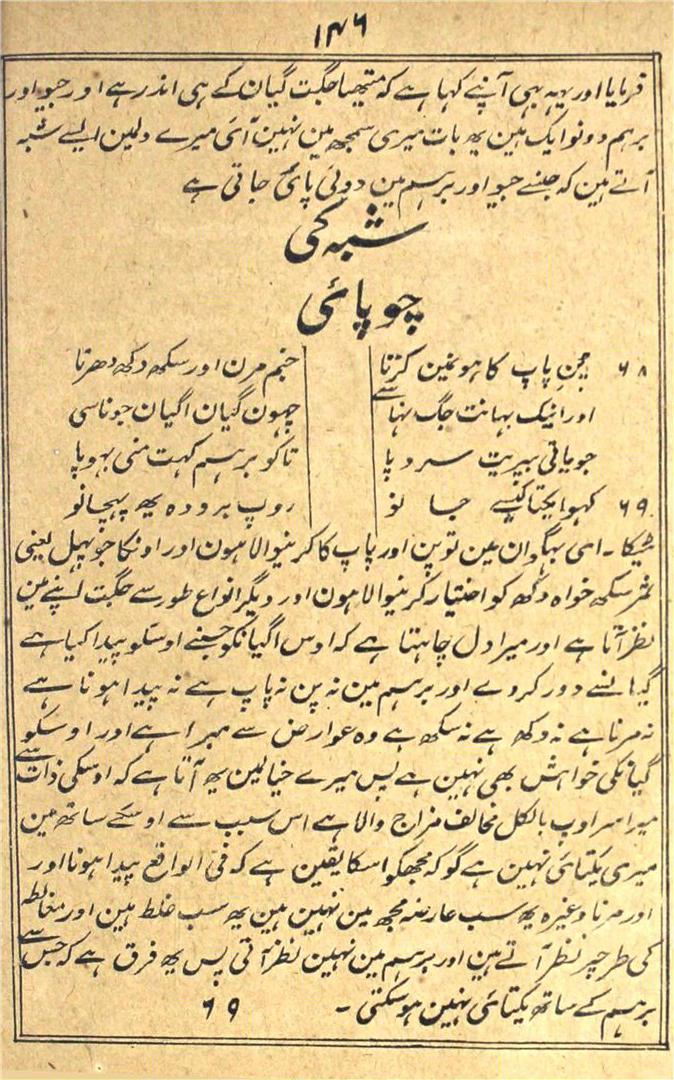 ۱۴۶
فرمایا اور یہہ بہی آپنے کہا ہے کہ متھیا جگت گیان کے ہی اندر ہے اور جیو اور
برہم دونو ایک ہین یہ بات میری سمجھ مین نہین آئی میرے دلمین ایسے شبہ
آتے ہین کہ جنسے جیو اور برہم مین دوئی پائی جاتی ہے
شبہ کی
چوپائی
۶۸ مین پاپ کا ہونمین کرتا جنم مرن اور سکھ دکھ دھرتا
اور انیک بہانت جگ بہاسے چہون گیان اگیان جو ناسی
جو یاتی بپریت سروپا تاکو برہم کہت منی بہوپا
۶۹ کہو ایکتا کیسے جانو روپ برودہ یہ پہچانو
ٹیکا۔ اسی بہگوان مین تو پن اور پاپ کا کرنیوالا ہون اور اونکا جو پہل یعنی
ثمر سکھ خواہ دکھ کو اختیار کرنیوالا ہون اور دیگر انواع طور سے جگت اپنے مین
نظر آتا ہے اور میرا دل چاہتا ہے کہ اوس اگیانکو جسنے اوسکو پیدا کیا ہے
گیانسے دور کروے اور برہم مین نہ پن نہ پاپ ہے نہ پیدا ہونا ہے
نہ مرنا ہے نہ دکھ ہے نہ سکھ ہے وہ عوارض سے مبرا ہے اور اوسکو
گیانکی خواہش بھی نہین ہے پس میرے خیالمین یہ آتا ہے کہ اوسکی ذات سے
میرا سروپ بالکل مخالف مزاج والا ہے اس سبب سے اوسکے ساتھ مین
میری یکتائی نہین ہے گو کہ مجھکو اسکا یقین ہے کہ فی الواقع پیدا ہونا اور
اور مرنا وغیرہ یہ سب عارضہ مجھ مین نہین ہین یہ سب غلط ہین اور مغالطہ
کی طرحپر نظر آتے ہین اور برہم مین نہین نظر آتی پس یہ فرق ہے کہ جس سے
برہم کے ساتھ یکتائی نہین ہوسکتی ۔ ۶۹